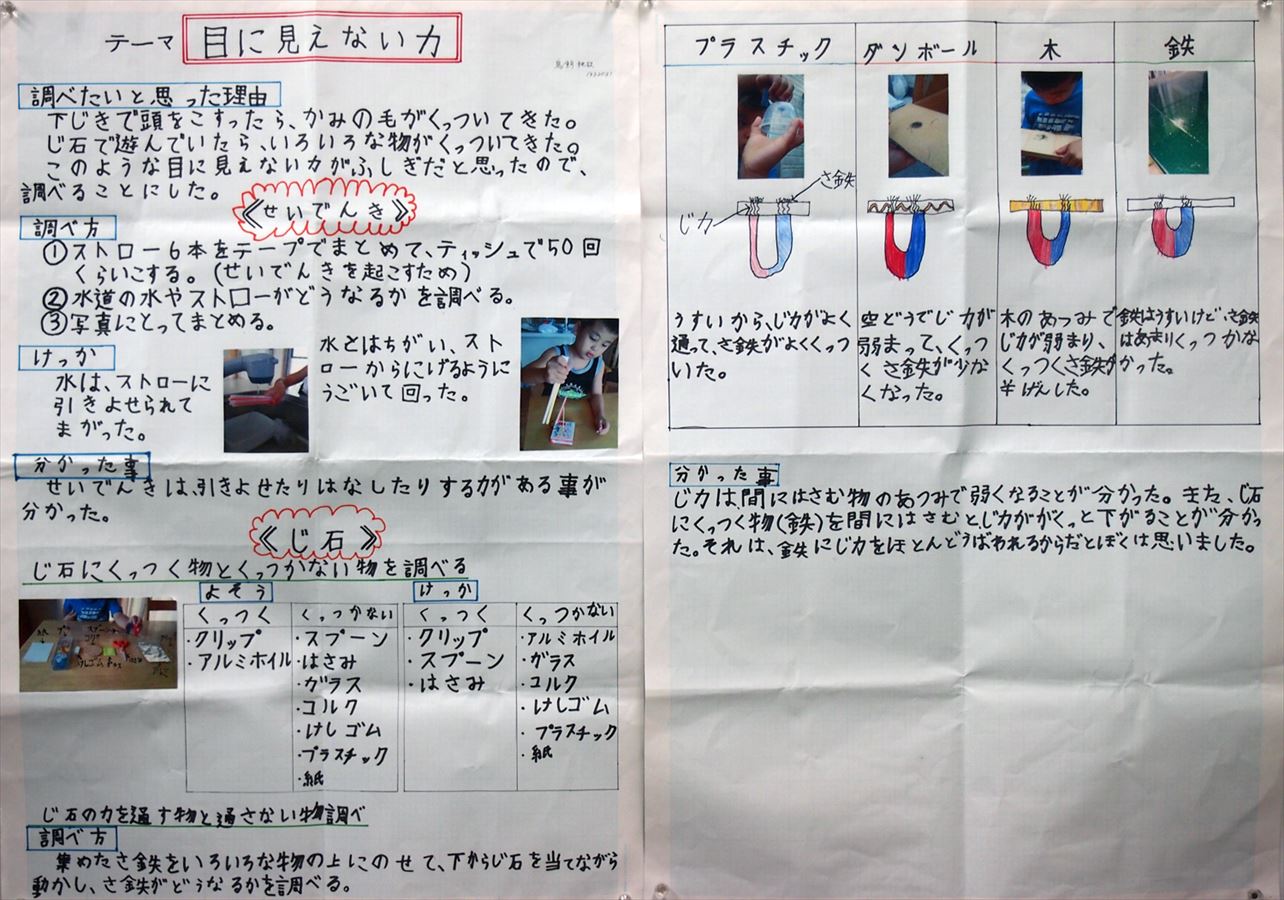 テーマ 目に見えない力
調べたいと思った理由
下じきで頭をこすったら、かみの毛がくっついてきた。
じ石で遊んでいたら、いろいろな物がくっついてきた。
このような目に見えない力がふしぎだと思ったので、
調べることにした。
《せいでんき》
調べ方
①ストロー6本をテープでまとめて、ティッシュで50回
くらいこする。(せいでんきを起こすため)
②水道の水やストローがどうなるかを調べる。
③写真にとってまとめる。
けっか
水は、ストローに
引きよせられて
まがった。
水とはちがい、スト
ローからにげるように
うごいて回った。
分かった事
せいでんきは、引きよせたりはなしたりする力がある事が
分かった。
《じ石》
じ石にくっつく物とくっつかない物を調べる
よそう
くっつく
・クリップ
・アルミホイル
くっつかない
・スプーン
・はさみ
・ガラス
・コルク
・けしゴム
・プラスチック
・紙
けっか
くっつく
・クリップ
・スプーン
・はさみ
くっつかない
・アルミホイル
・ガラス
・コルク
・けしゴム
・プラスチック
・紙
じ石の力を通す物と通さない物調べ
調べ方
集めたさ鉄をいろいろな物の上にのせて、下からじ石を当てながら
動かし、さ鉄がどうなるかを調べる。
プラスチック
さ鉄
じ力
うすいから、じ力がよく
通って、さ鉄がよくくっつ
いた。
ダンボール
空どうでじ力が
弱まって、くっつ
くさ鉄が少な
くなった。
木
木のあつみで
じ力が弱まり、
くっつくさ鉄が
半げんした。
鉄
鉄はうすいけど、さ鉄
はあまりくっつかな
かった。
分かった事
じ力は、間にはさむ物のあつみで弱くなることが分かった。また、じ石
にくっつく物(鉄)を間にはさむとじ力ががくっと下がることが分かっ
た。それは、鉄にじ力をほとんどうばわれるからだとぼくは思いました。